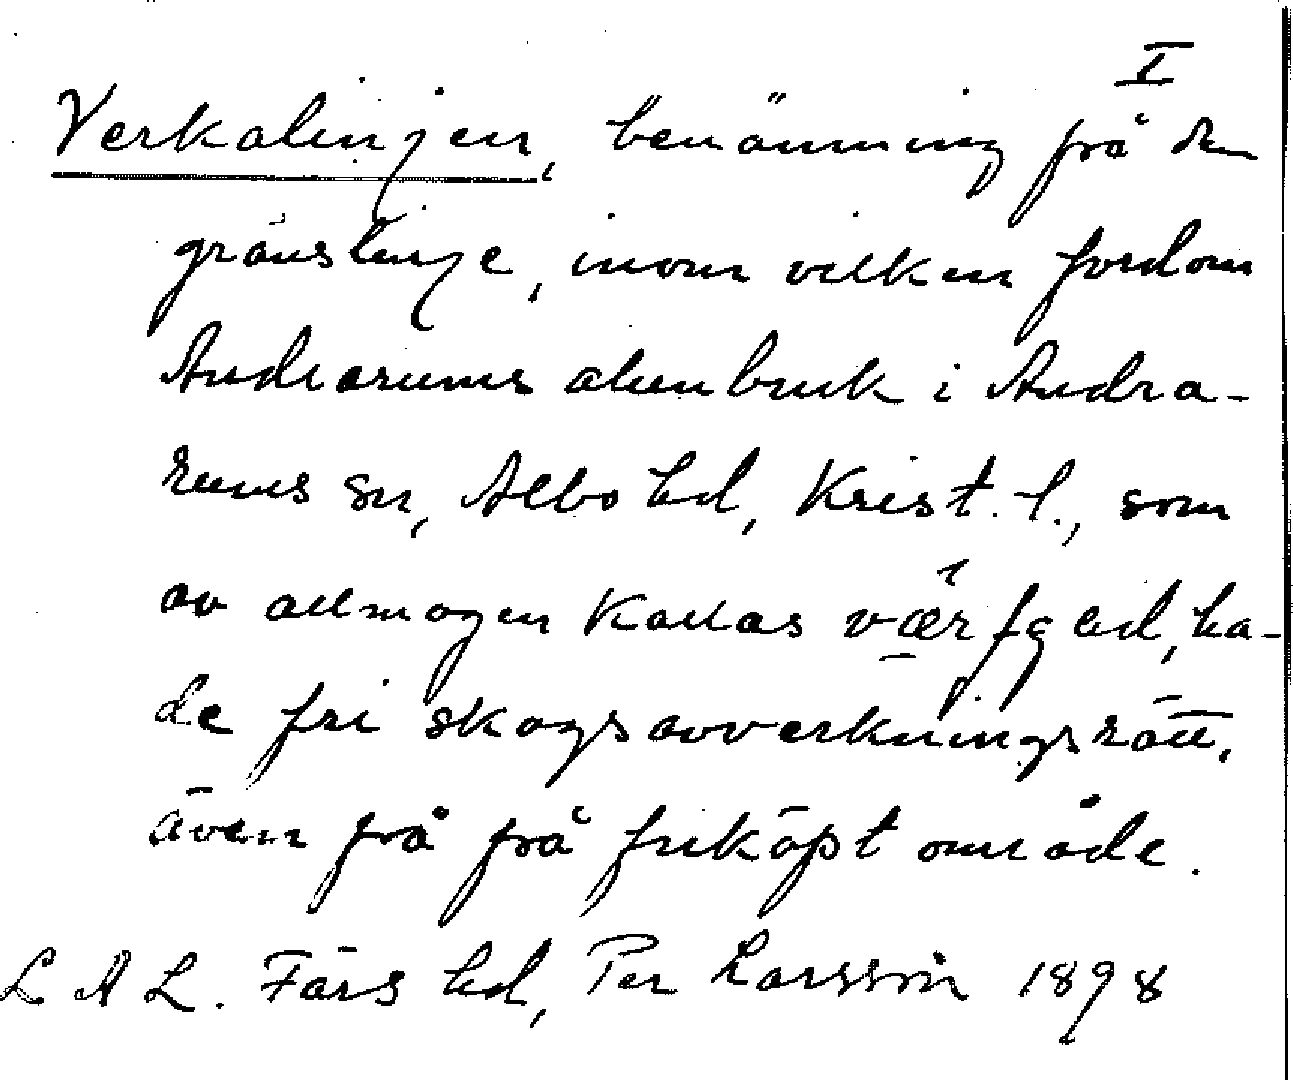 I
Verkalinjen, benämning på den
gränslinje, inom vilken fordom
Andrarums alunbruk i Andra-
rums sn, Albo hd, Krist. l., som
av allmogen kallas, ha-
de fri skogsavverkningsrätt,
även på på friköpt område.
L A L. Färs hd, Per Larsson 1898